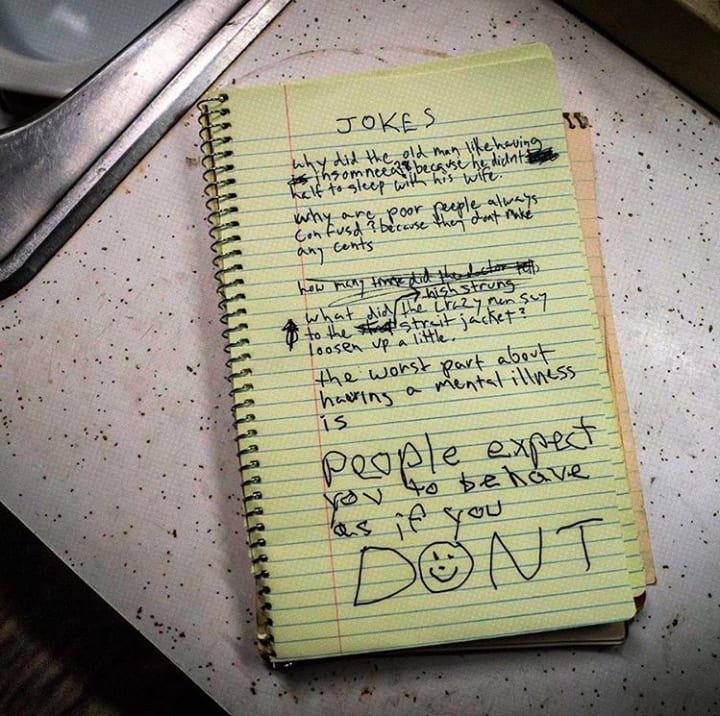 JOKES
why did the old man like having
insomneea? because he didnt
haft to sleep with his wife.
why are poor peeple always
confusd? because they dont make
any cents
how many did the doctor tell
high strung
what did the crazy man say
to the strait jacket?
loosen up a little.
the worst part about
having a mental illness
is
people expect
you to behave
as if you
DONT